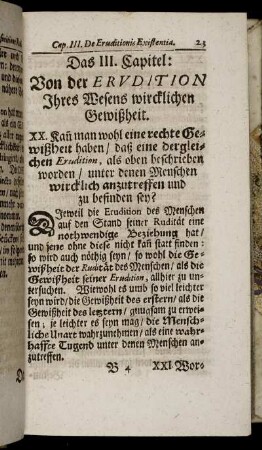 Cap. III. De Eruditionis Existentia. 23
Das III. Capitel:
Von der ERVDITION
Ihres Wesens wircklichen
Gewißheit.
XX. Kañ man wohl eine rechte Ge-
wißheit haben / daß eine dergleis
chen Erudition, als oben beschrieben
worden / unter denen Menschen
wircklich anzutreffen und
zu befinden sey?
DIeweil die Erudition des Menschen
auf den Stand seiner Rudität eine
nothwendige Beziehung hat /
und jene ohne diese nicht kañ statt finden:
so wird auch nöthig seyn / so wohl die Ge-
wißheit der Rudität des Menschen / als die
Gewißheit seiner Erudition, allhier zu un-
tersuchen. Wiewohl es umb so viel leichter
seyn wird / die Gewißheit des erstern / als die
Gewißheit des letztern / gnugsam zu erwei-
sen; je leichter es seyn mag / die Mensch-
liche Unart wahrzunehmen / als eine wahr-
haffte Tugend unter denen Menschen an-
zutreffen.
B 4 XXI Wor-